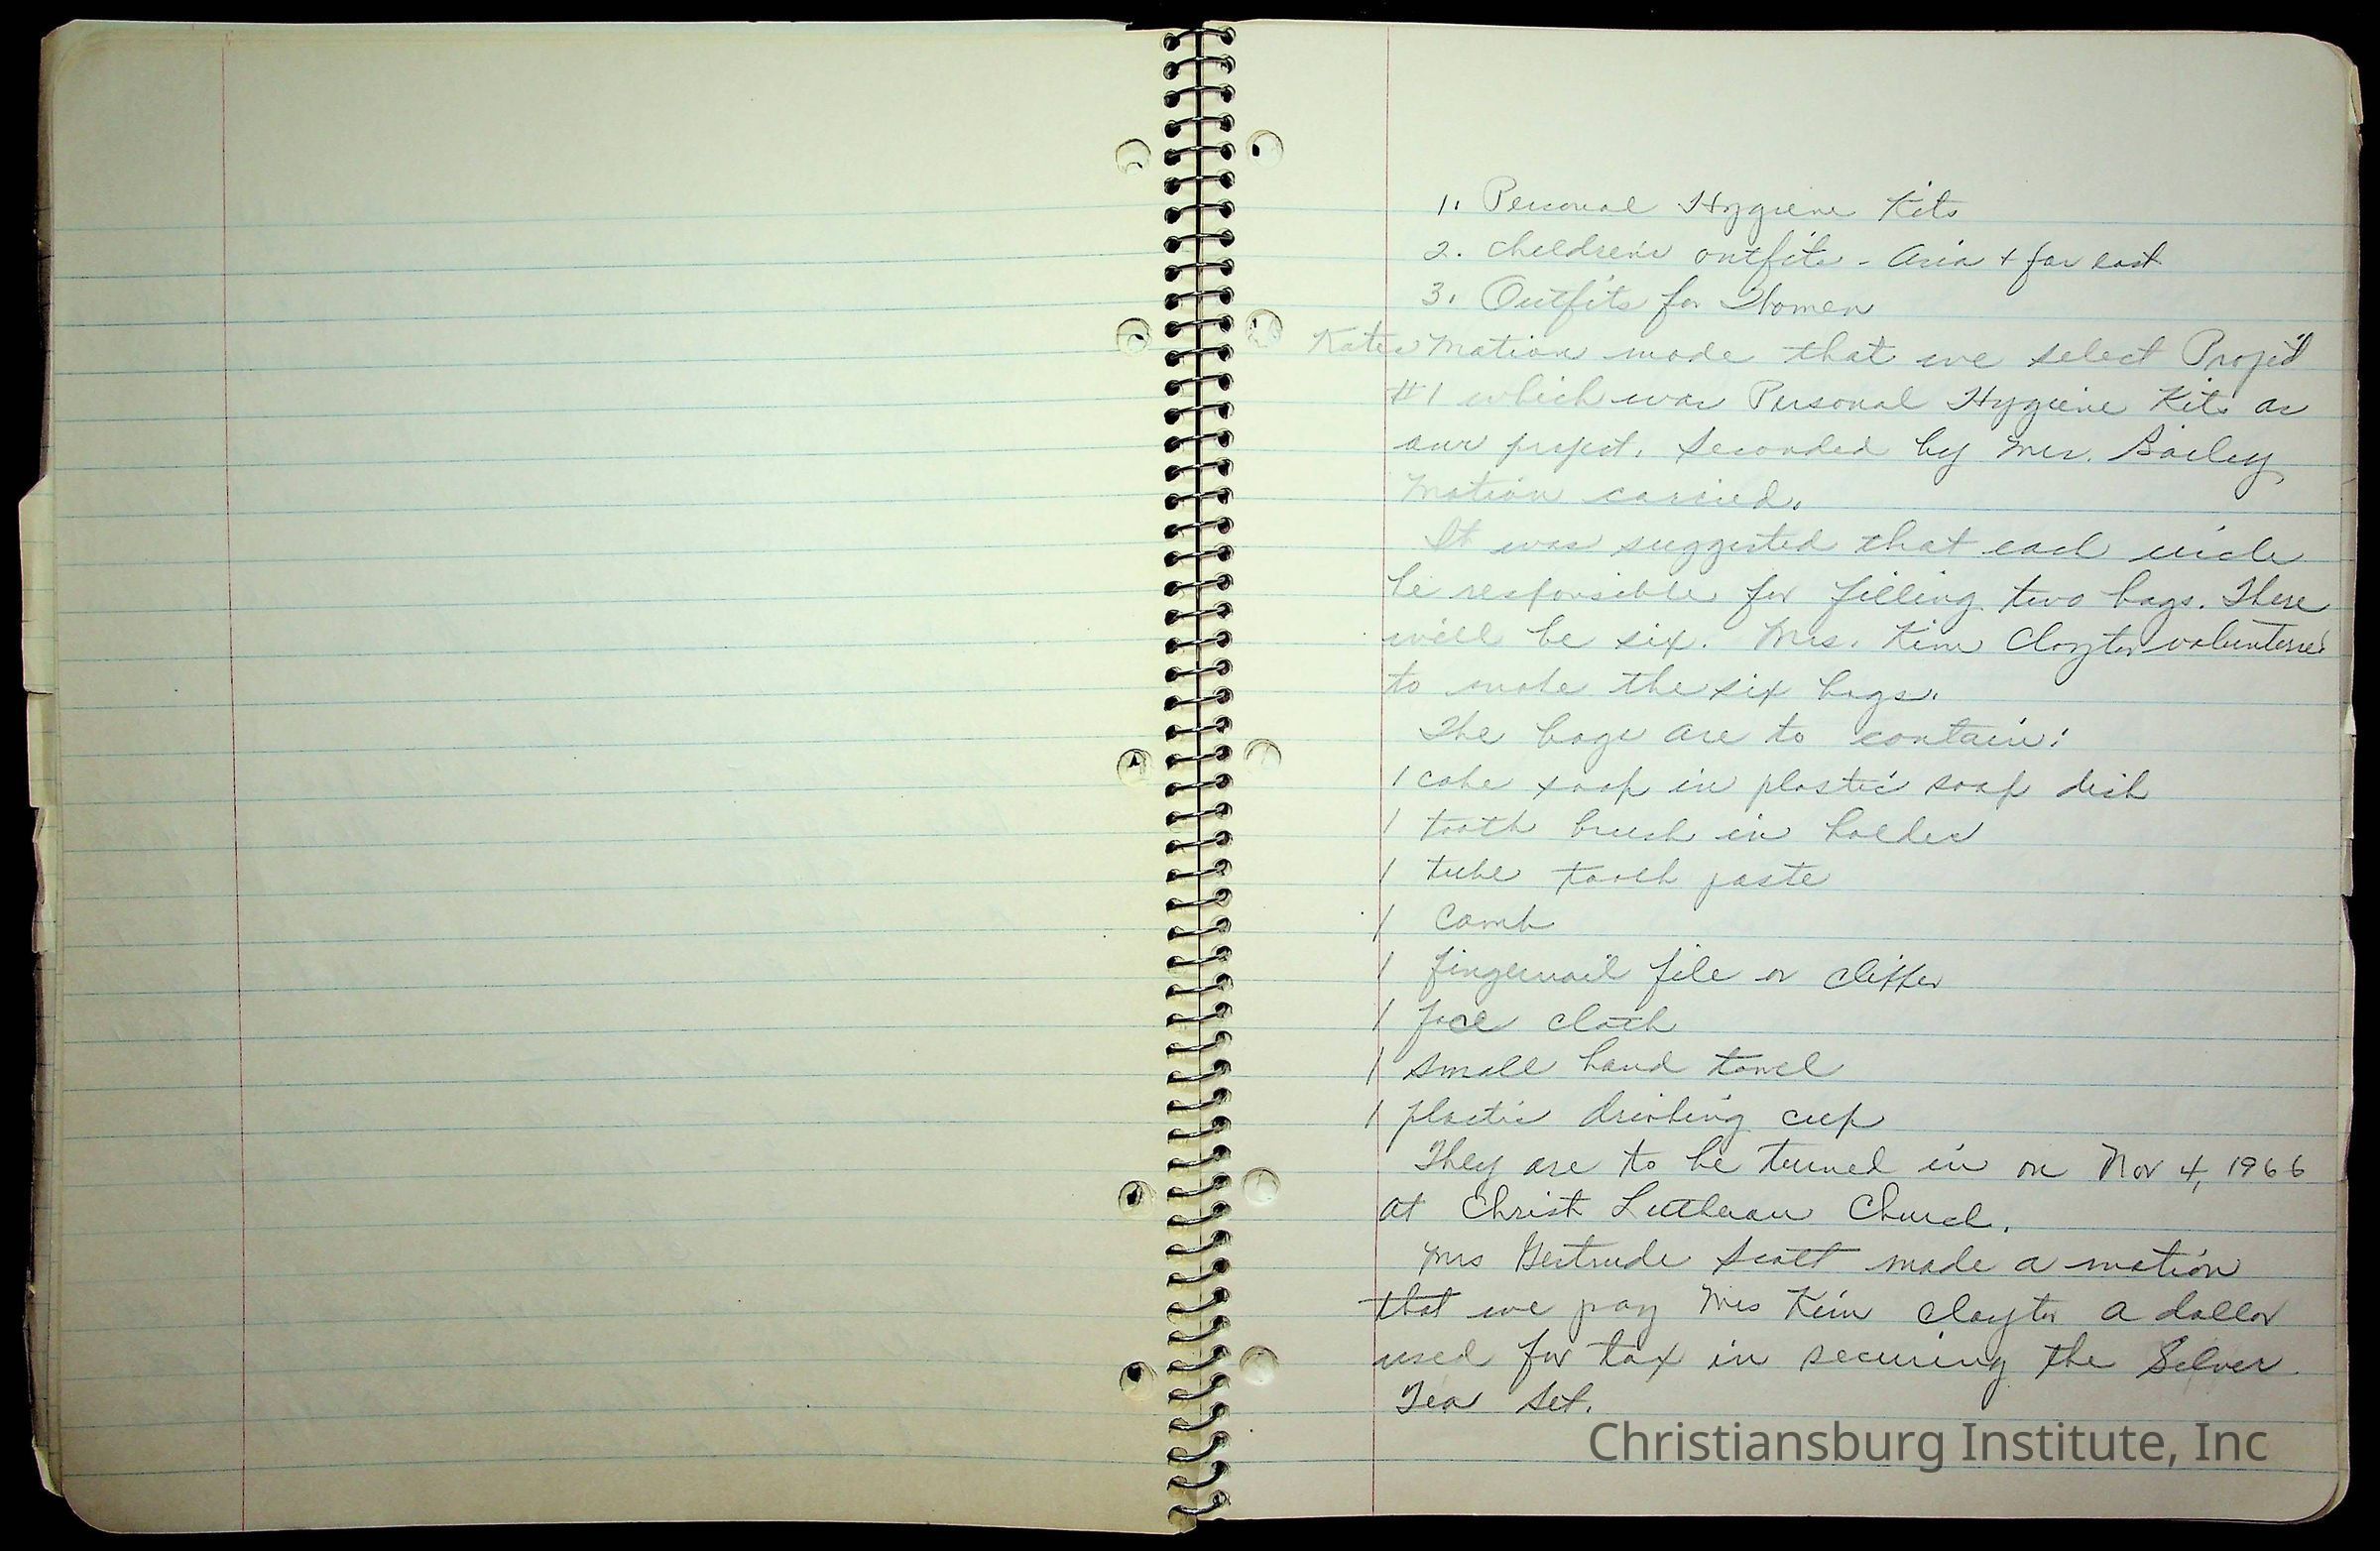 1. Personal Hygiene Kits
2. Children's outfits - Asia + far east
3. Outfits for Women
Motion made that we select Project
#1 which was Personal Hygiene Kits as
our project. Seconded by Mrs. Bailey
Motion carried.
It was suggested that each circle
be responsible for filling two bags. There
will be six. Mrs. Kim Clayton volunteered
to make the six bags.
The bags are to contain:
1 cake soap in plastic soap dish
1 tooth brush in holder
1 tube tooth paste
1 Comb
1 fingernail file or clipper
1 face cloth
1 small hand towel
1 plastic drinking cup
They are to be turned in on Nov 4, 1966
at Christ Lutheran Church.
Mrs Gertrude Scott made a motion
that we pay Mrs Kim Claytor a dollar
used for tax in securing the Silver
Tea Set.
Christiansburg Institute, Inc